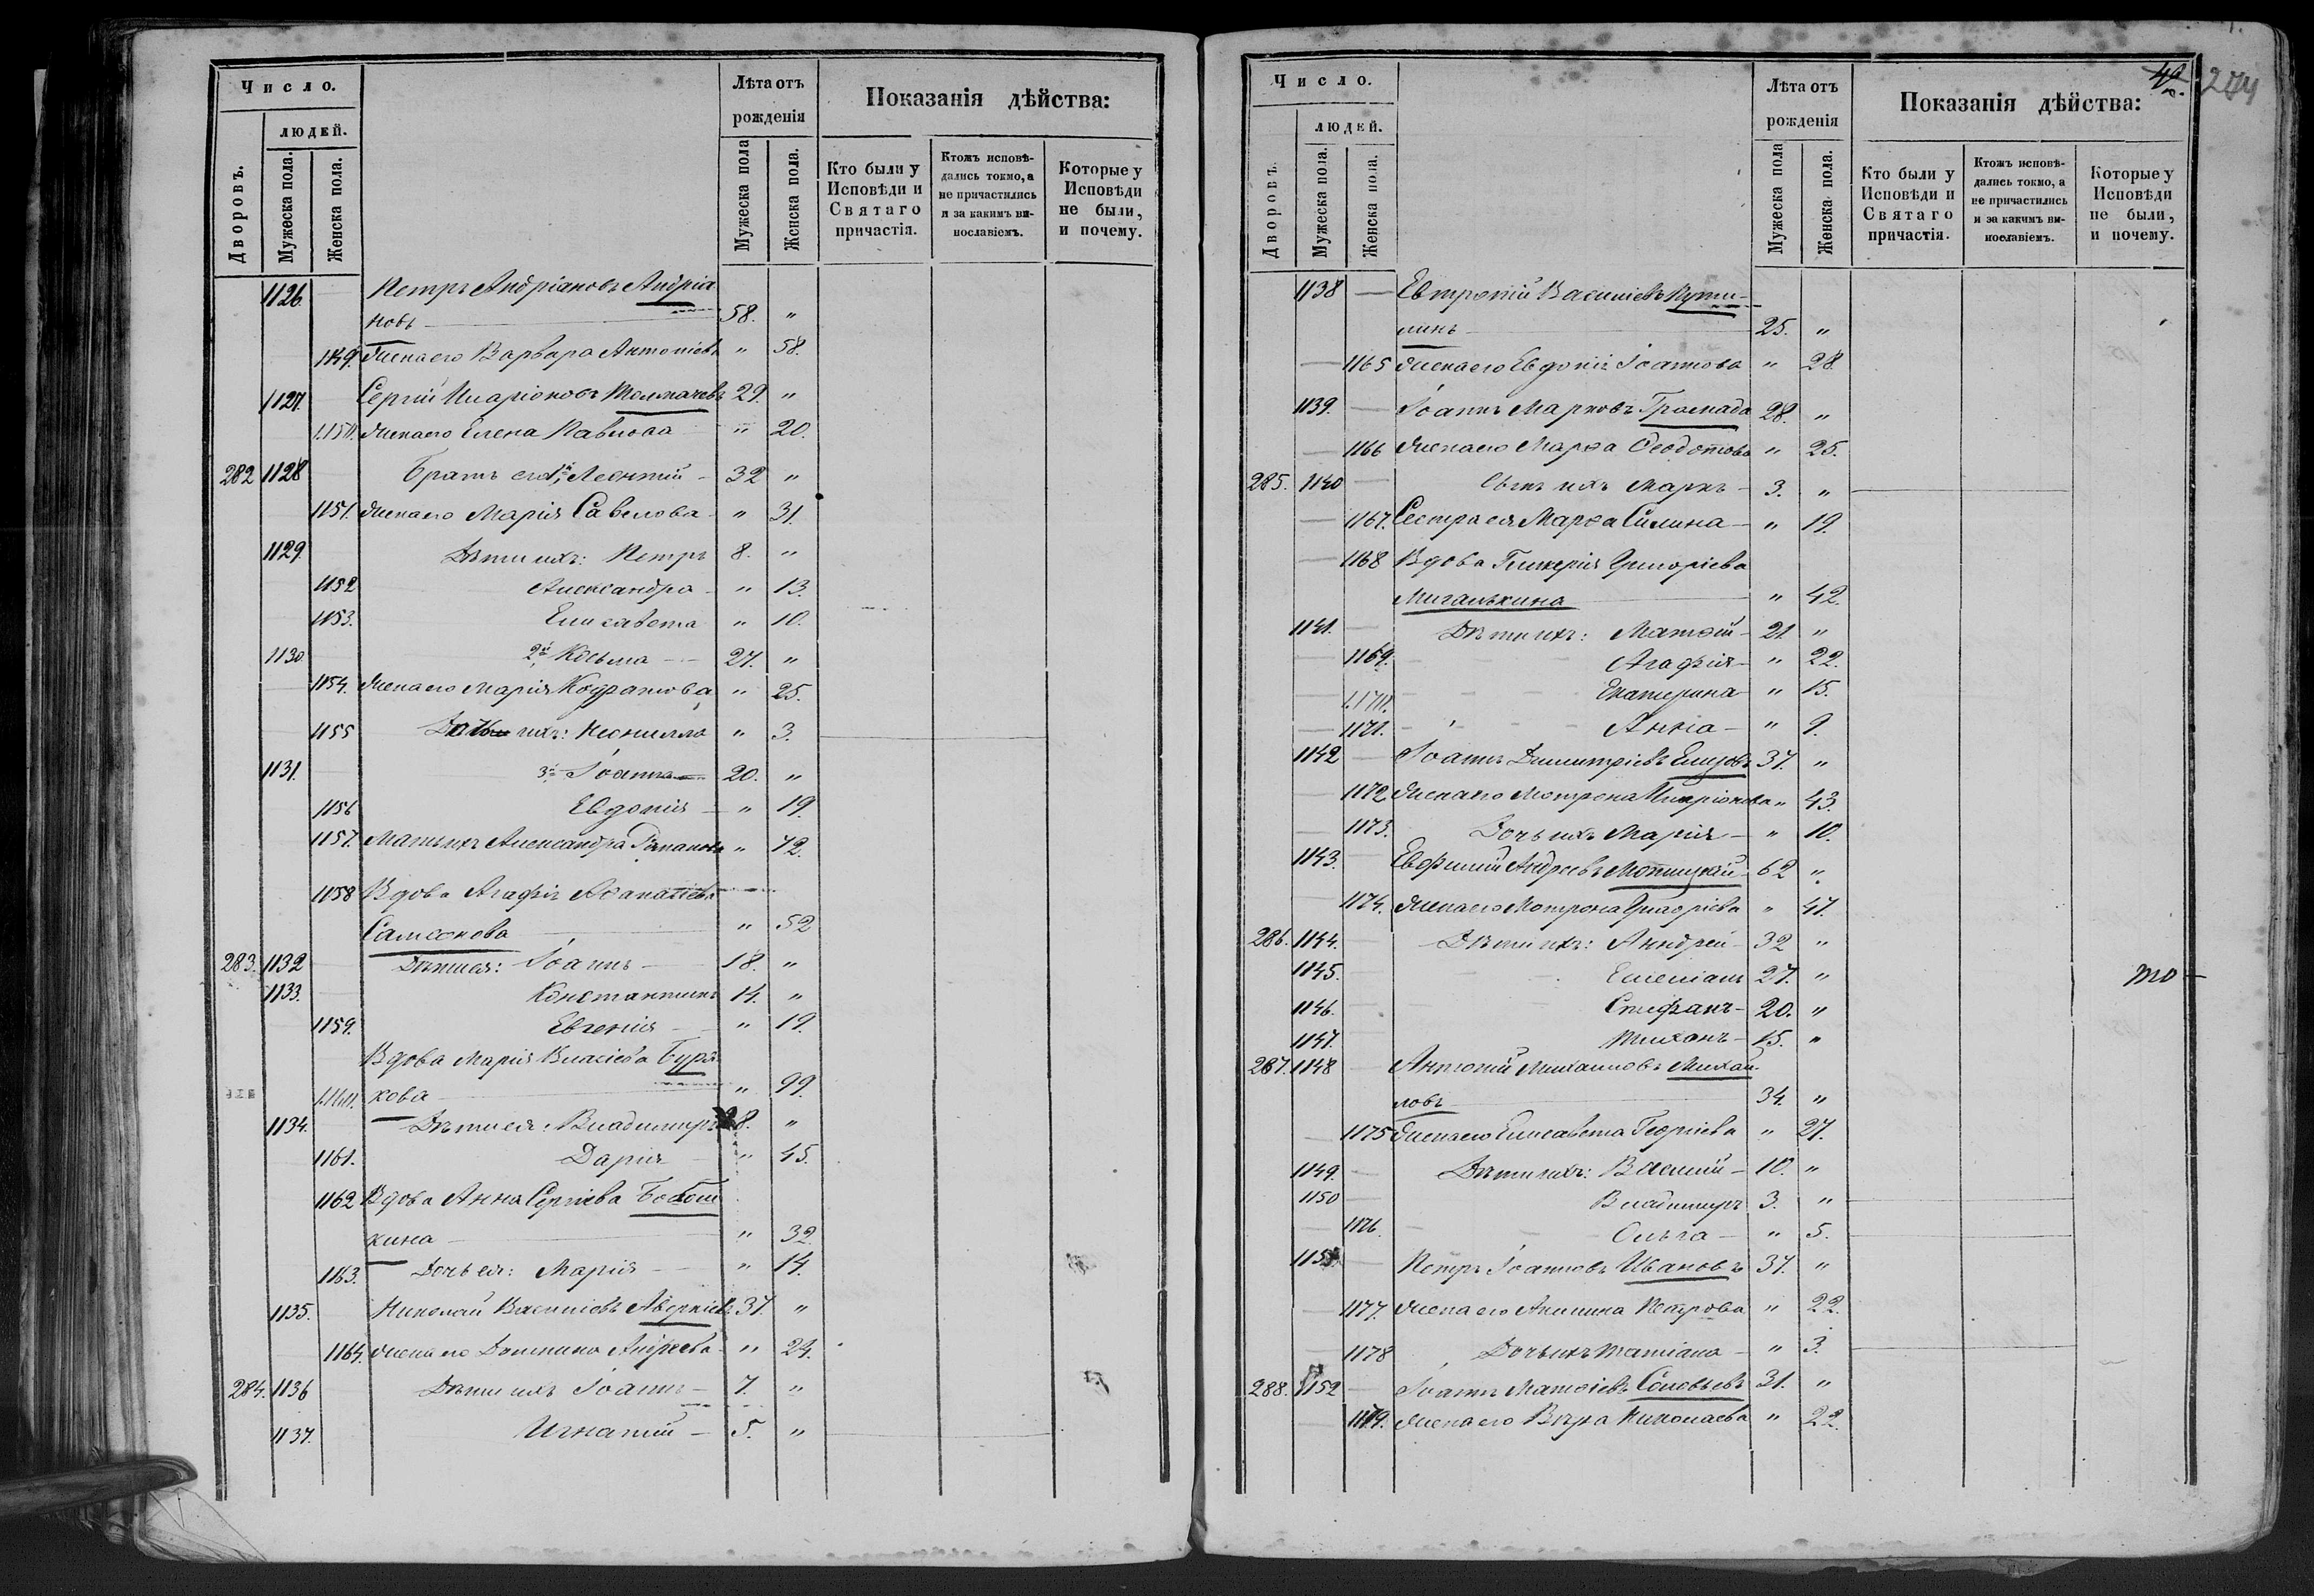 Число.
людей.
Дворовъ.
Мужеска пола.
Женска пола.
Лѣта отъ
рожденія
Мужеска пола
Женска пола.
Показанія дѣйства:
Кто были у
Исповѣди и
Святаго
причастія.
Ктожъ исповѣ-
дались токмо, а
не причастились
и за какимъ ви-
нословіемъ.
Которые у
Исповѣди
не были,
и почему.
1126. Петръ Андріановъ Андріа
новъ 58. "
1149. Жена его Варвара Антоніева " 58.
1127. Сергій Иларіоновъ Толмачевъ 29. "
1150. Жена его Елена Павлова " 20.
282 1128 Братъ его 1й Леонтій 32 "
1151. Жена его Марія Савелова " 31.
1129. Дѣти ихъ: Петръ 8. "
1152 Александра " 13.
1153. Елисавета " 10.
1130. 2й Косьма 27. "
1154. Жена его Марія Кодратова " 25.
1155 Дочь ихъ: Неонилла " 3.
1131. 3й Іоаннъ 20. "
1156 Евдокія " 19.
1157. Мать ихъ Александра Романова " 72.
1158 Вдова Агафія Аѳанасіева
Самсонова " 52
283. 1132 Дѣти ея: Іоаннъ 18. "
1133. Константинъ 14. "
1159. Евгенія " 19.
Вдова Марія Власіева Буря
1160. кова " 99.
1134. Дѣти ея: Владимиръ 28. "
1161. Дарія " 45.
1162 Вдова Анна Сергіева
кина " 32.
1163. Дочь ея: Марія " 14.
1135. Николай Василіевъ Аверкіевъ 37. "
1164. Жена его Домнина Андреева " 24.
284. 1136 Дѣти ихъ Іоаннъ 7. "
1137. Игнатій 5. "
Число.
людей.
Дворовъ.
Мужеска пола.
Женска пола.
Лѣта отъ
рожденія
Мужеска пола
Женска пола.
Показанія дѣйства:
274
Кто были у
Исповѣди и
Святаго
причастія.
Ктожъ исповѣ-
дались токмо, а
не причастились
и за какимъ ви-
нословіемъ.
Которые у
Исповѣди
не были,
и почему.
1138 Евтропій Василіевъ Пути-
линъ 25. "
1165 Жена его Евдокія Іоаннова " 28.
1139. Іоаннъ Марковъ Громада 28. "
1166 Жена его Марѳа Ѳеодотова " 25.
285. 1140 Сынъ ихъ Маркъ 3. "
1167. Сестра ея Марѳа Силина " 19.
1168 Вдова Гликерія Григоріева
Мигалькина " 42.
1141. Дѣти ихъ: Матѳій 21 "
1169. Агафія " 22.
1170. Екатерина " 15.
1171. Анна " 9.
1142 Іоаннъ Димитріевъ 37. "
1172 Жена его Мотрона Иларіонова " 43.
1173. Дочь ихъ Марія " 10.
1143. Евфимій Андреевъ 62 "
1174. Жена его Мотрона Григоріева " 47.
286. 1144. Дѣти ихъ: Андрей 32 "
1145. Емеліанъ 27. "
1146. Стефанъ 20. "
1147. Тихонъ 15. "
287. 1148 Антоній Михаиловъ Михай-
ловъ 34. "
1175 Жена его Елисавета Георгіева " 27.
1149. Дѣти ихъ: Василій 10. "
1150 Владимиръ 3. "
1176. Ольга " 5.
1151 Петръ Іоанновъ Ивановъ 37. "
1177. Жена его Акилина Петрова " 22.
1178 Дочь ихъ Татіана " 3.
288. 1152 Іоаннъ Матѳіевъ Соловьевъ 31. "
1179. Жена его Вѣра Николаева " 22.